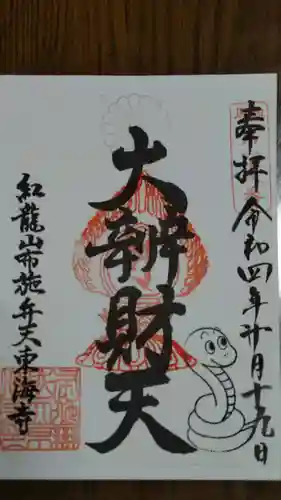 奉拝
令和四年十月十九日
大辨財天
紅龍山布施弁天東海寺